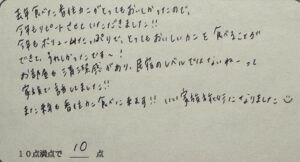 去年食べた香住カニがとってもおいしかったので、
今年もリピートさせていただきました!!
今年もボリュームたっぷりで、とってもおいしいカニを食べることが
できて、うれしかったです～!
お部屋も清潔感があり、民宿のレベルではないね～って
家族で話しました!!
また来年も香住カニ食べに来ます!! いい家族旅行になりました☺
10点満点で 10 点